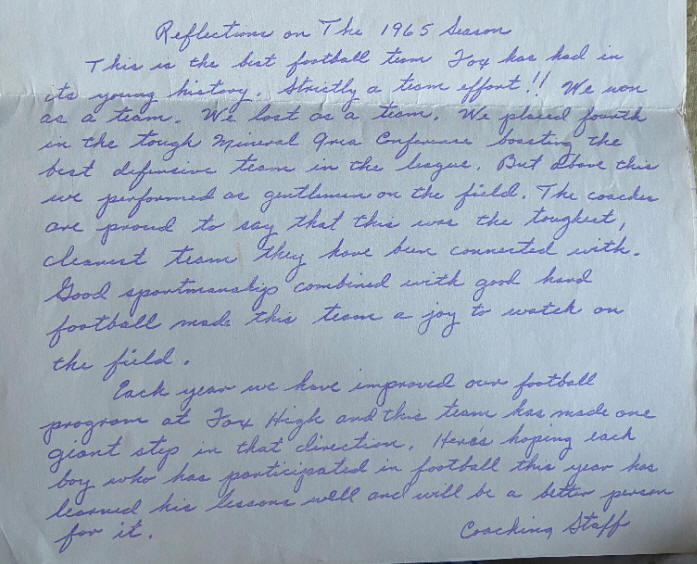 Reflections on The 1965 Season
This is the best football team Fox has had in
its young history. Strictly a team effort!! We won
as a team. We lost as a team. We placed fourth
in the tough Mineral Area Conference boasting the
best defensive team in the league. But above this
we performed as gentlemen on the field. The coaches
are proud to say that this was the toughest,
cleanest team they have been connected with.
Good sportmanship combined with good hard
football made this team a joy to watch on
the field.
Each year we have improved our football
program at Fox High and this team has made one
giant step in that direction. Here's hoping each
boy who has participated in football this year has
learned his lessons well and will be a better person
for it.
Coaching Staff